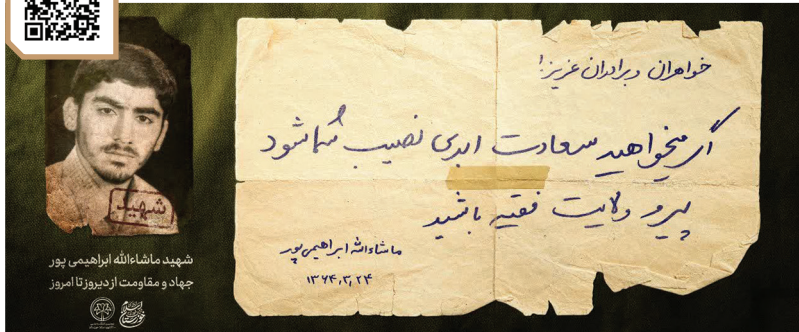 خواهران و برادران عزیز!
اگر میخواهید سعادت ابدی نصیب شما شود
پیرو ولایت فقیه باشید
ماشاءالله ابراهیمی پور
۱۳۶۴,۳,۲۴
شهید
شهید ماشاءالله ابراهیمی پور
جهاد و مقاومت از دیروز تا امروز